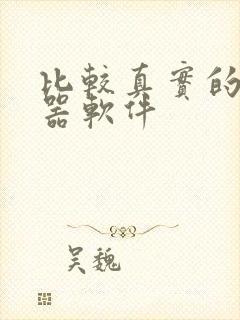 比較真實的
器軟件
吴魏